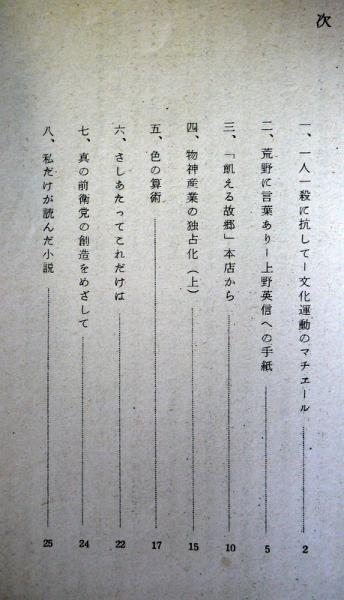 次
一、一人一殺に抗して―文化運動のマチエール……2
二、荒野に言葉あり―上野英信への手紙……5
三、「飢える故郷」本店から……10
四、物神産業の独占化（上）……15
五、色の算術……17
六、さしあたってこれだけは……22
七、真の前衛党の創造をめざして……24
八、私だけが読んだ小説……25